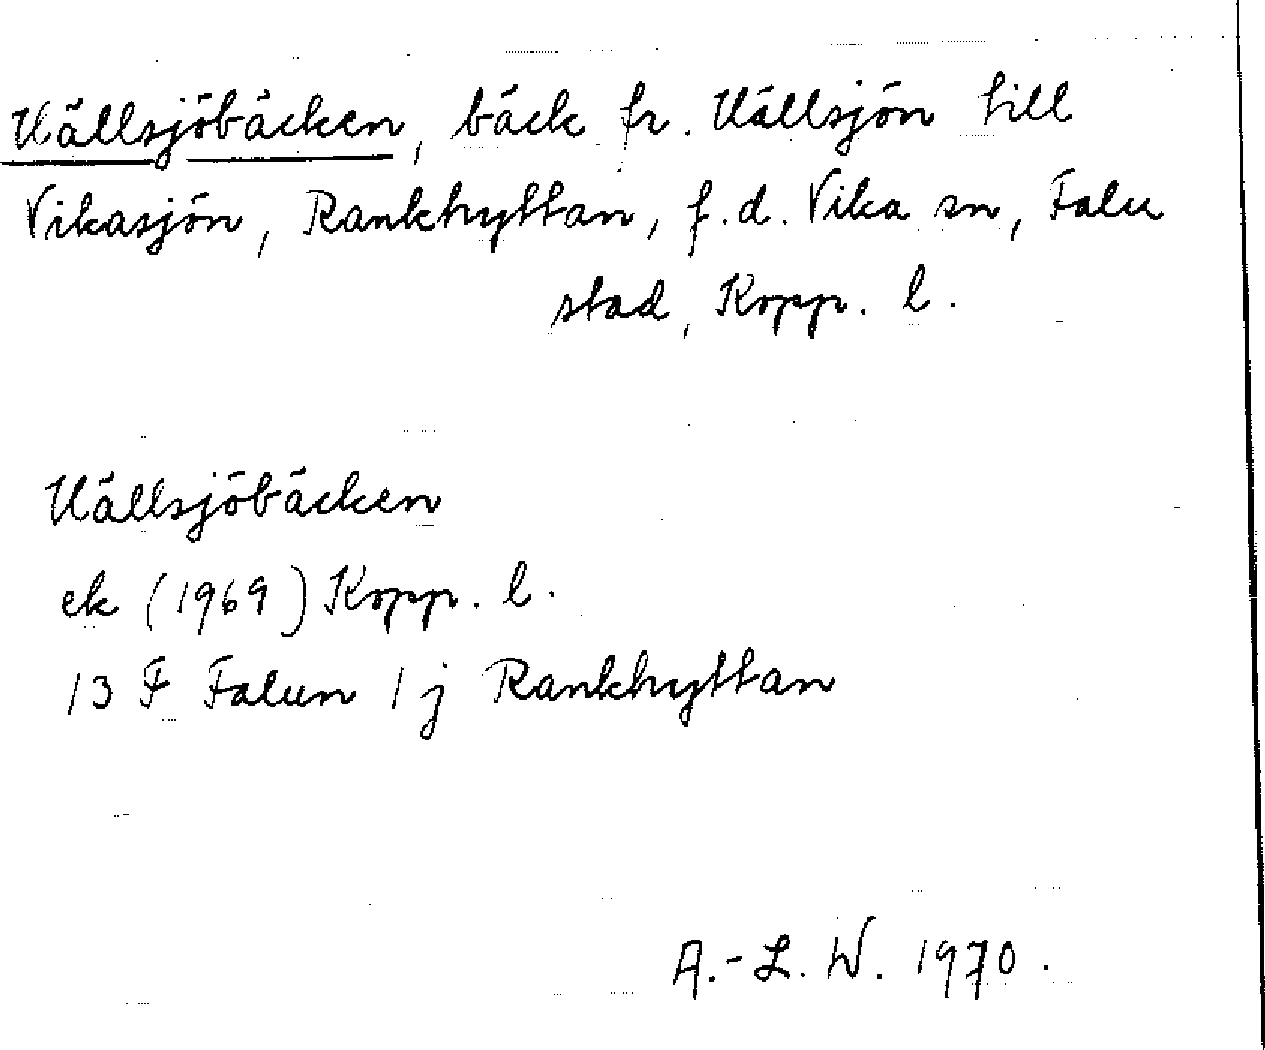 Källsjöbäcken, bäck fr. Källsjön till
Vikasjön, Rankhyttan, f.d. Vika sn, Falu
stad, Kopp. l.
Källsjöbäcken
ek (1969) Kopp. l.
13 F Falun 1 j Rankhyttan
A.-L. W. 1970.